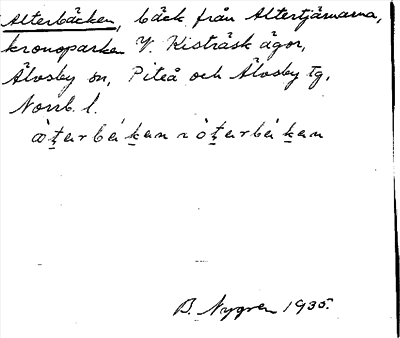 Alterbäcken, bäck från Altertjärnarna,
kronoparken V. Kisträsk ägor,
Älvsby sn, Piteå och Älvsby tg,
Norrb. l.
B. Nygren 1935.